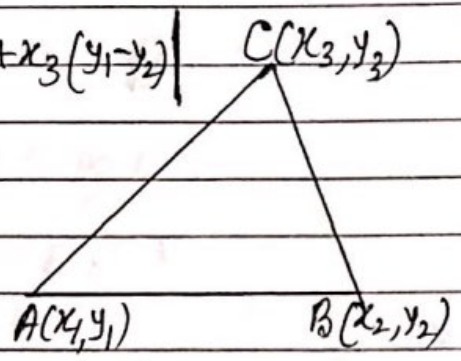 +x₃(y₁-y₂)|
C(x₃,y₃)
A(x₁,y₁)
B(x₂,y₂)